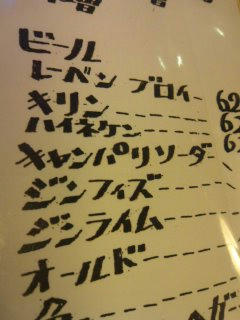 ビール
レーベンブロイー 62
キリン------- 62
ハイネケン------ 62
キャンパリソーダー
ジンフィズ-----
ジンライム-----
オールド-----